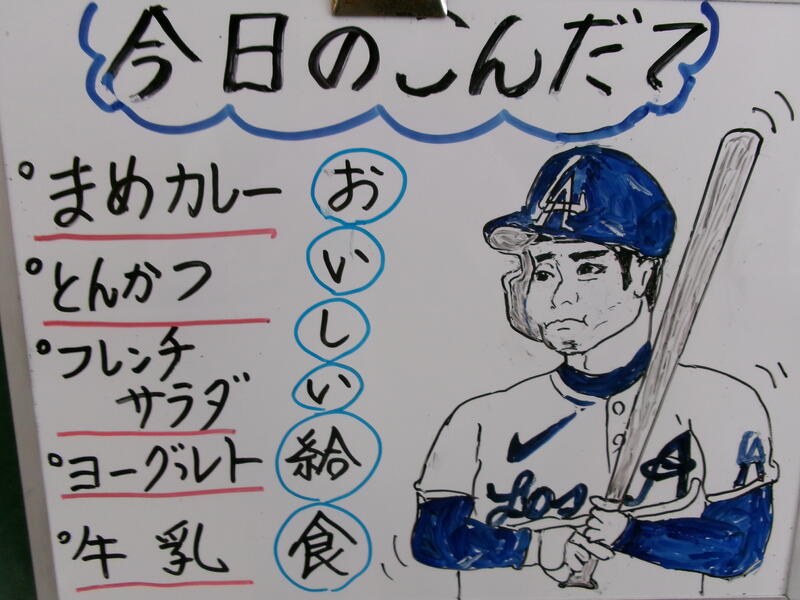 今日のこんだて
まめカレー
とんかつ
フレンチ
サラダ
ヨーグルト
牛乳
おいしい給食
A
Los A
A